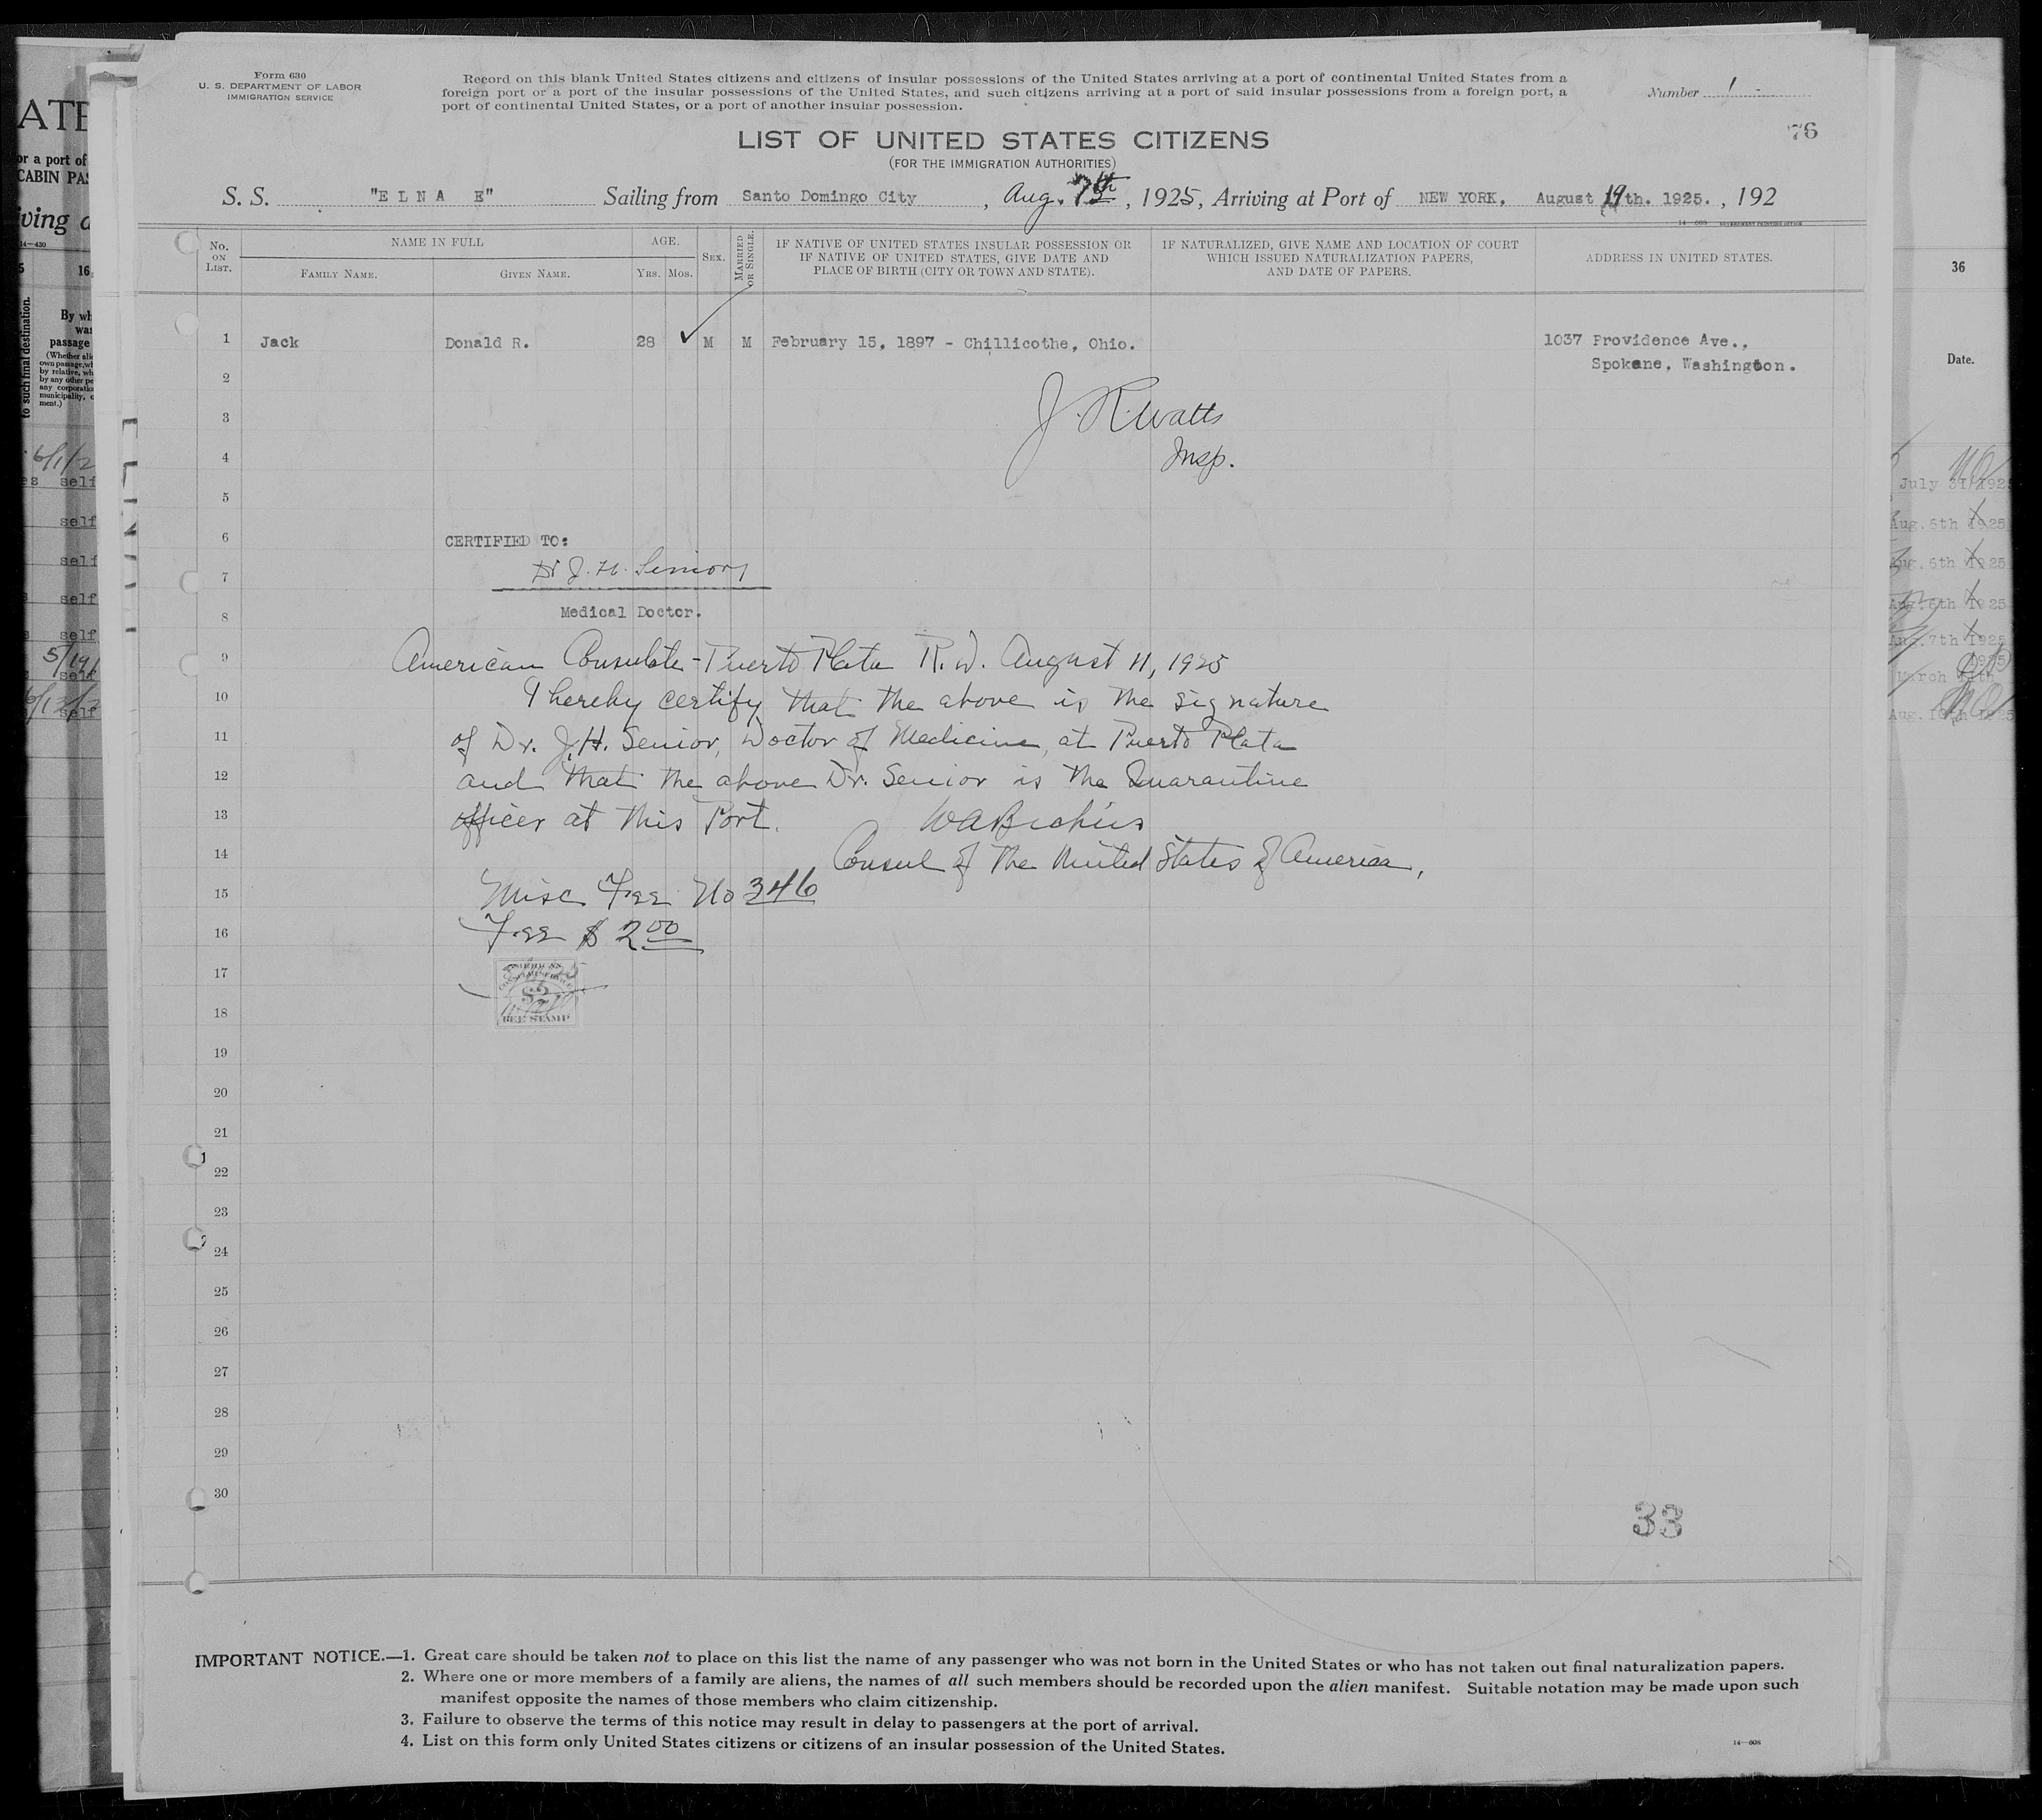 Form 630
U. S. DEPARTMENT OF LABOR
IMMIGRATION SERVICE
Record on this blank United States citizens and citizens of insular possessions of the United States arriving at a port of continental United States from a
foreign port or a port of the insular possessions of the United States, and such citizens arriving at a port of said insular possessions from a foreign port, a
port of continental United States, or a port of another insular possession.
Number 1
76
LIST OF UNITED STATES CITIZENS
(FOR THE IMMIGRATION AUTHORITIES)
S. S. "ELNA E" Sailing from Santo Domingo City, Aug. 7th, 1925, Arriving at Port of NEW YORK, August 19th. 1925., 192
No. ON LIST.
NAME IN FULL
FAMILY NAME.
GIVEN NAME.
AGE.
YRS. MOS.
SEX.
MARRIED OR SINGLE.
IF NATIVE OF UNITED STATES INSULAR POSSESSION OR
IF NATIVE OF UNITED STATES, GIVE DATE AND
PLACE OF BIRTH (CITY OR TOWN AND STATE).
IF NATURALIZED, GIVE NAME AND LOCATION OF COURT
WHICH ISSUED NATURALIZATION PAPERS,
AND DATE OF PAPERS.
ADDRESS IN UNITED STATES.
1 Jack Donald R. 28 M M February 15, 1897 - Chillicothe, Ohio. 1037 Providence Ave.,
Spokane, Washington.
2
3 J. R. Watts
4 Insp.
5
6 CERTIFIED TO:
7 Dr J. H. Senior
8 Medical Doctor.
9 American Consulate - Puerto Plata R. D. August 11, 1925
10 I hereby certify that the above is the signature
11 of Dr. J. H. Senior, Doctor of Medicine, at Puerto Plata
12 and that the above Dr. Senior is the Quarantine
13 officer at this Port.
14 Consul of the United States of America,
15 Misc Fee No 346
16 Fee $ 2 00
17
18
FEE STAMP
19
20
21
22
23
24
25
26
27
28
29
30
33
IMPORTANT NOTICE.—1. Great care should be taken not to place on this list the name of any passenger who was not born in the United States or who has not taken out final naturalization papers.
2. Where one or more members of a family are aliens, the names of all such members should be recorded upon the alien manifest. Suitable notation may be made upon such
manifest opposite the names of those members who claim citizenship.
3. Failure to observe the terms of this notice may result in delay to passengers at the port of arrival.
4. List on this form only United States citizens or citizens of an insular possession of the United States.
14—608
36
Date.